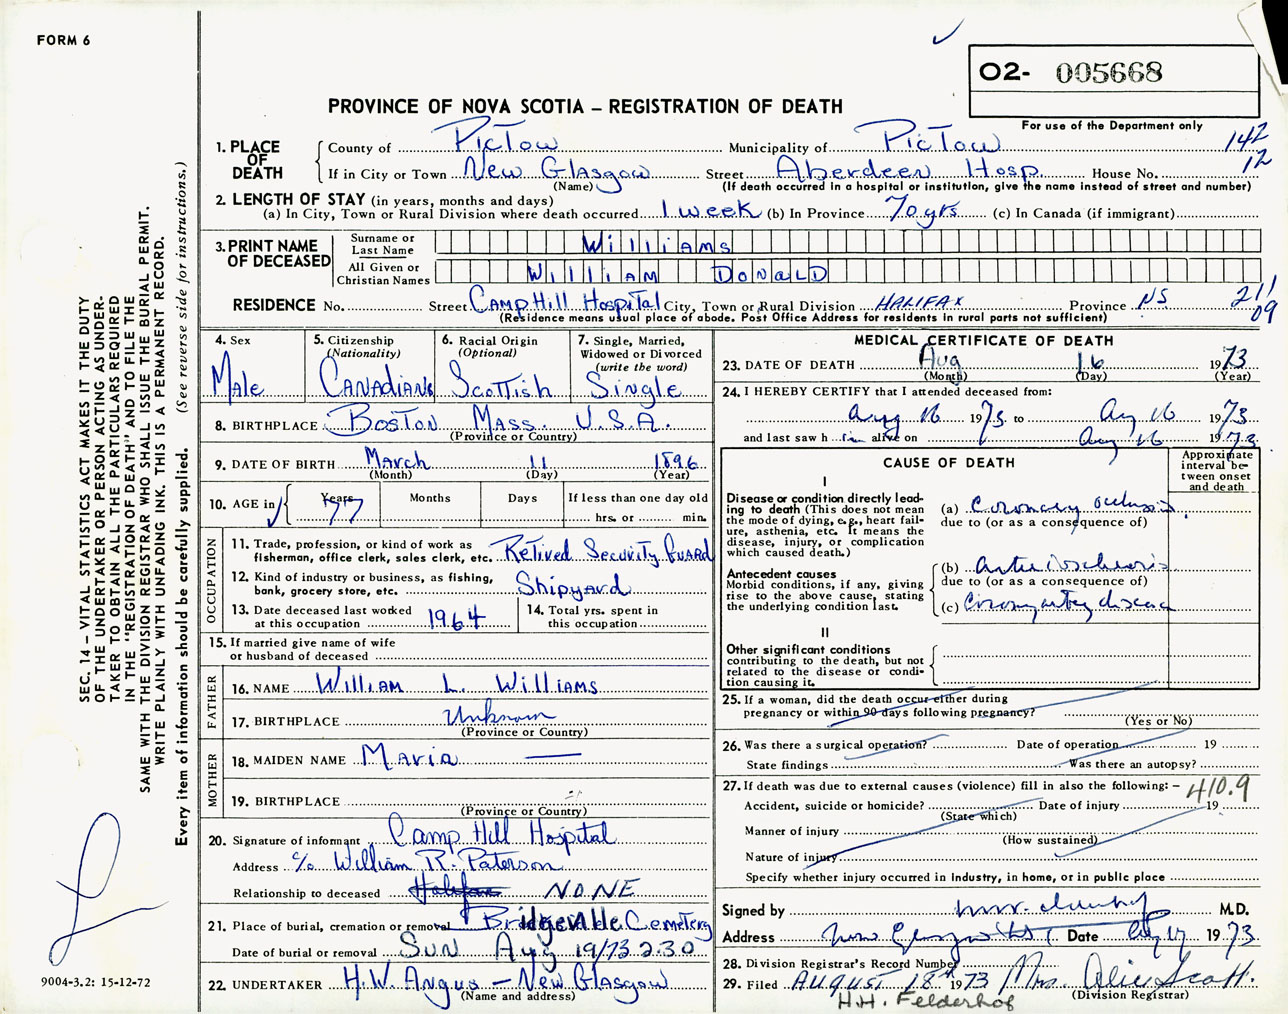 FORM 6
O2- 005668
PROVINCE OF NOVA SCOTIA – REGISTRATION OF DEATH
For use of the Department only
1. PLACE OF DEATH
County of Pictou Municipality of Pictou 142
If in City or Town New Glasgow Street Aberdeen Hosp. House No. 12
(Name) (If death occurred in a hospital or institution, give the name instead of street and number)
2. LENGTH OF STAY (in years, months and days)
(a) In City, Town or Rural Division where death occurred 1 week (b) In Province 70 yrs (c) In Canada (if immigrant)
3. PRINT NAME OF DECEASED
Surname or Last Name Williams
All Given or Christian Names William Donald
RESIDENCE No. Street Camp Hill Hospital City, Town or Rural Division HALIFAX Province NS 211 09
(Residence means usual place of abode. Post Office Address for residents in rural parts not sufficient)
4. Sex Male
5. Citizenship (Nationality) Canadian
6. Racial Origin (Optional) Scottish
7. Single, Married, Widowed or Divorced (write the word) Single
8. BIRTHPLACE Boston Mass. U.S.A.
(Province or Country)
9. DATE OF BIRTH March 11 1896
(Month) (Day) (Year)
10. AGE in Years Months Days If less than one day old
77 hrs. or min.
OCCUPATION
11. Trade, profession, or kind of work as fisherman, office clerk, sales clerk, etc. Retired Security Guard
12. Kind of industry or business, as fishing, bank, grocery store, etc. Shipyard
13. Date deceased last worked at this occupation 1964
14. Total yrs. spent in this occupation
15. If married give name of wife or husband of deceased
FATHER
16. NAME William L. Williams
17. BIRTHPLACE Unknown
(Province or Country)
MOTHER
18. MAIDEN NAME Maria —
19. BIRTHPLACE
(Province or Country)
20. Signature of informant Camp Hill Hospital
Address c/o William R. Paterson
Relationship to deceased Halifax NONE
21. Place of burial, cremation or removal Bridgeville Cemetery
Date of burial or removal Sun Aug 19/73 2.30
22. UNDERTAKER H.W. Angus – New Glasgow
(Name and address)
MEDICAL CERTIFICATE OF DEATH
23. DATE OF DEATH Aug 16 1973
(Month) (Day) (Year)
24. I HEREBY CERTIFY that I attended deceased from:
Aug 16 1973 to Aug 16 1973
and last saw him alive on Aug 16 1973
CAUSE OF DEATH
Approximate interval between onset and death
I
Disease or condition directly leading to death (This does not mean the mode of dying, e.g., heart failure, asthenia, etc. It means the disease, injury, or complication which caused death.)
(a) Coronary occlusion
due to (or as a consequence of)
Antecedent causes
Morbid conditions, if any, giving rise to the above cause, stating the underlying condition last.
(b)
due to (or as a consequence of)
(c) Coronary artery disease
II
Other significant conditions contributing to the death, but not related to the disease or condition causing it.
25. If a woman, did the death occur either during pregnancy or within 90 days following pregnancy?
(Yes or No)
26. Was there a surgical operation? Date of operation 19
State findings Was there an autopsy?
27. If death was due to external causes (violence) fill in also the following: – 410.9
Accident, suicide or homicide? Date of injury 19
(State which)
Manner of injury
(How sustained)
Nature of injury
Specify whether injury occurred in industry, in home, or in public place
Signed by M.D.
Address New Glasgow Date Aug 17 1973
28. Division Registrar's Record Number
29. Filed August 18th 1973 Mrs. Alice Scott
(Division Registrar)
H.H. Felderhof
SEC. 14 – VITAL STATISTICS ACT MAKES IT THE DUTY
OF THE UNDERTAKER OR PERSON ACTING AS UNDER-
TAKER TO OBTAIN ALL THE PARTICULARS REQUIRED
IN THE "REGISTRATION OF DEATH" AND TO FILE THE
SAME WITH THE DIVISION REGISTRAR WHO SHALL ISSUE THE BURIAL PERMIT.
WRITE PLAINLY WITH UNFADING INK. THIS IS A PERMANENT RECORD.
Every item of information should be carefully supplied. (See reverse side for instructions.)
9004-3.2: 15-12-72